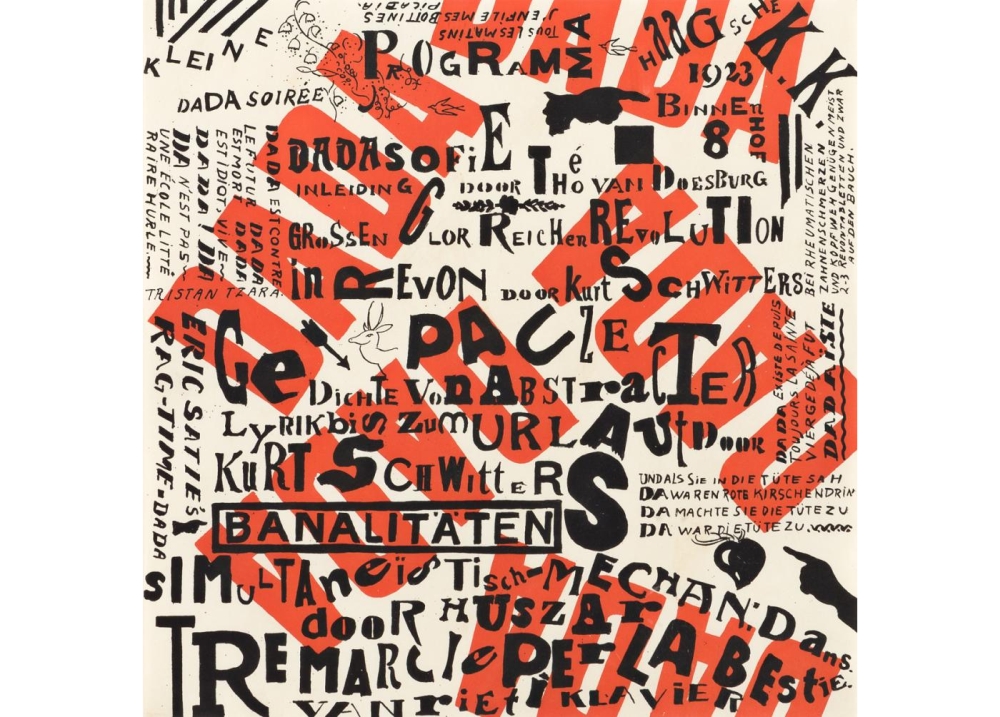 TOUS LES MATINS
J'ENFILE MES BOTTINES
PICABIA.
KLEINE
DADA SOIRÉE
PROGRAMMA
HAAGSCHE K.K.
1923
BINNENHOF
8
DADASOFIE Théo VAN DOESBURG
INLEIDING DOOR
GROSSEN GLORREICHEN REVOLUTION
in REVON DOOR Kurt SCHWITTERS.
DADA EST CONTRE
LE FUTUR. DADA
EST MORT. DADA
EST IDIOT. VIVE
DADA! DA
DA N'EST PAS
UNE ÉCOLE LITTÉ
RAIRE HURLE
TRISTAN TZARA.
BEI RHEUMATISCHEN
ZAHNENSCHMERZEN
UND KOPFWEH GENÜGEN MEIST
2-3 REVONTABLETTEN UND ZWAR
AUF DEN BAUCH.
Ge PAUZE
DICHTE VON ABSTraCTER
LYRIK bis ZUM URLAUt DOOR
KURT SCHWittERS
ERIC SATIE'S
RAG-TIME-DADA
DADA EXISTE DEPUIS
TOUJOURS LA SAINTE
VIERGE DÉJÀ FUT
DADAÏSTE
UND ALS SIE IN DIE TÜTE SAH
DA WAREN ROTE KIRSCHEN DRIN
DA MACHTE SIE DIE TÜTE ZU
DA WAR DIE TÜTE ZU.
BANALITÄTEN
SIMULTANEïSTisch-MECHAN: Dans.
dooR HUSZAR
TRE MARCIe PER LA BEstie.
VAN RietI KLAVIER